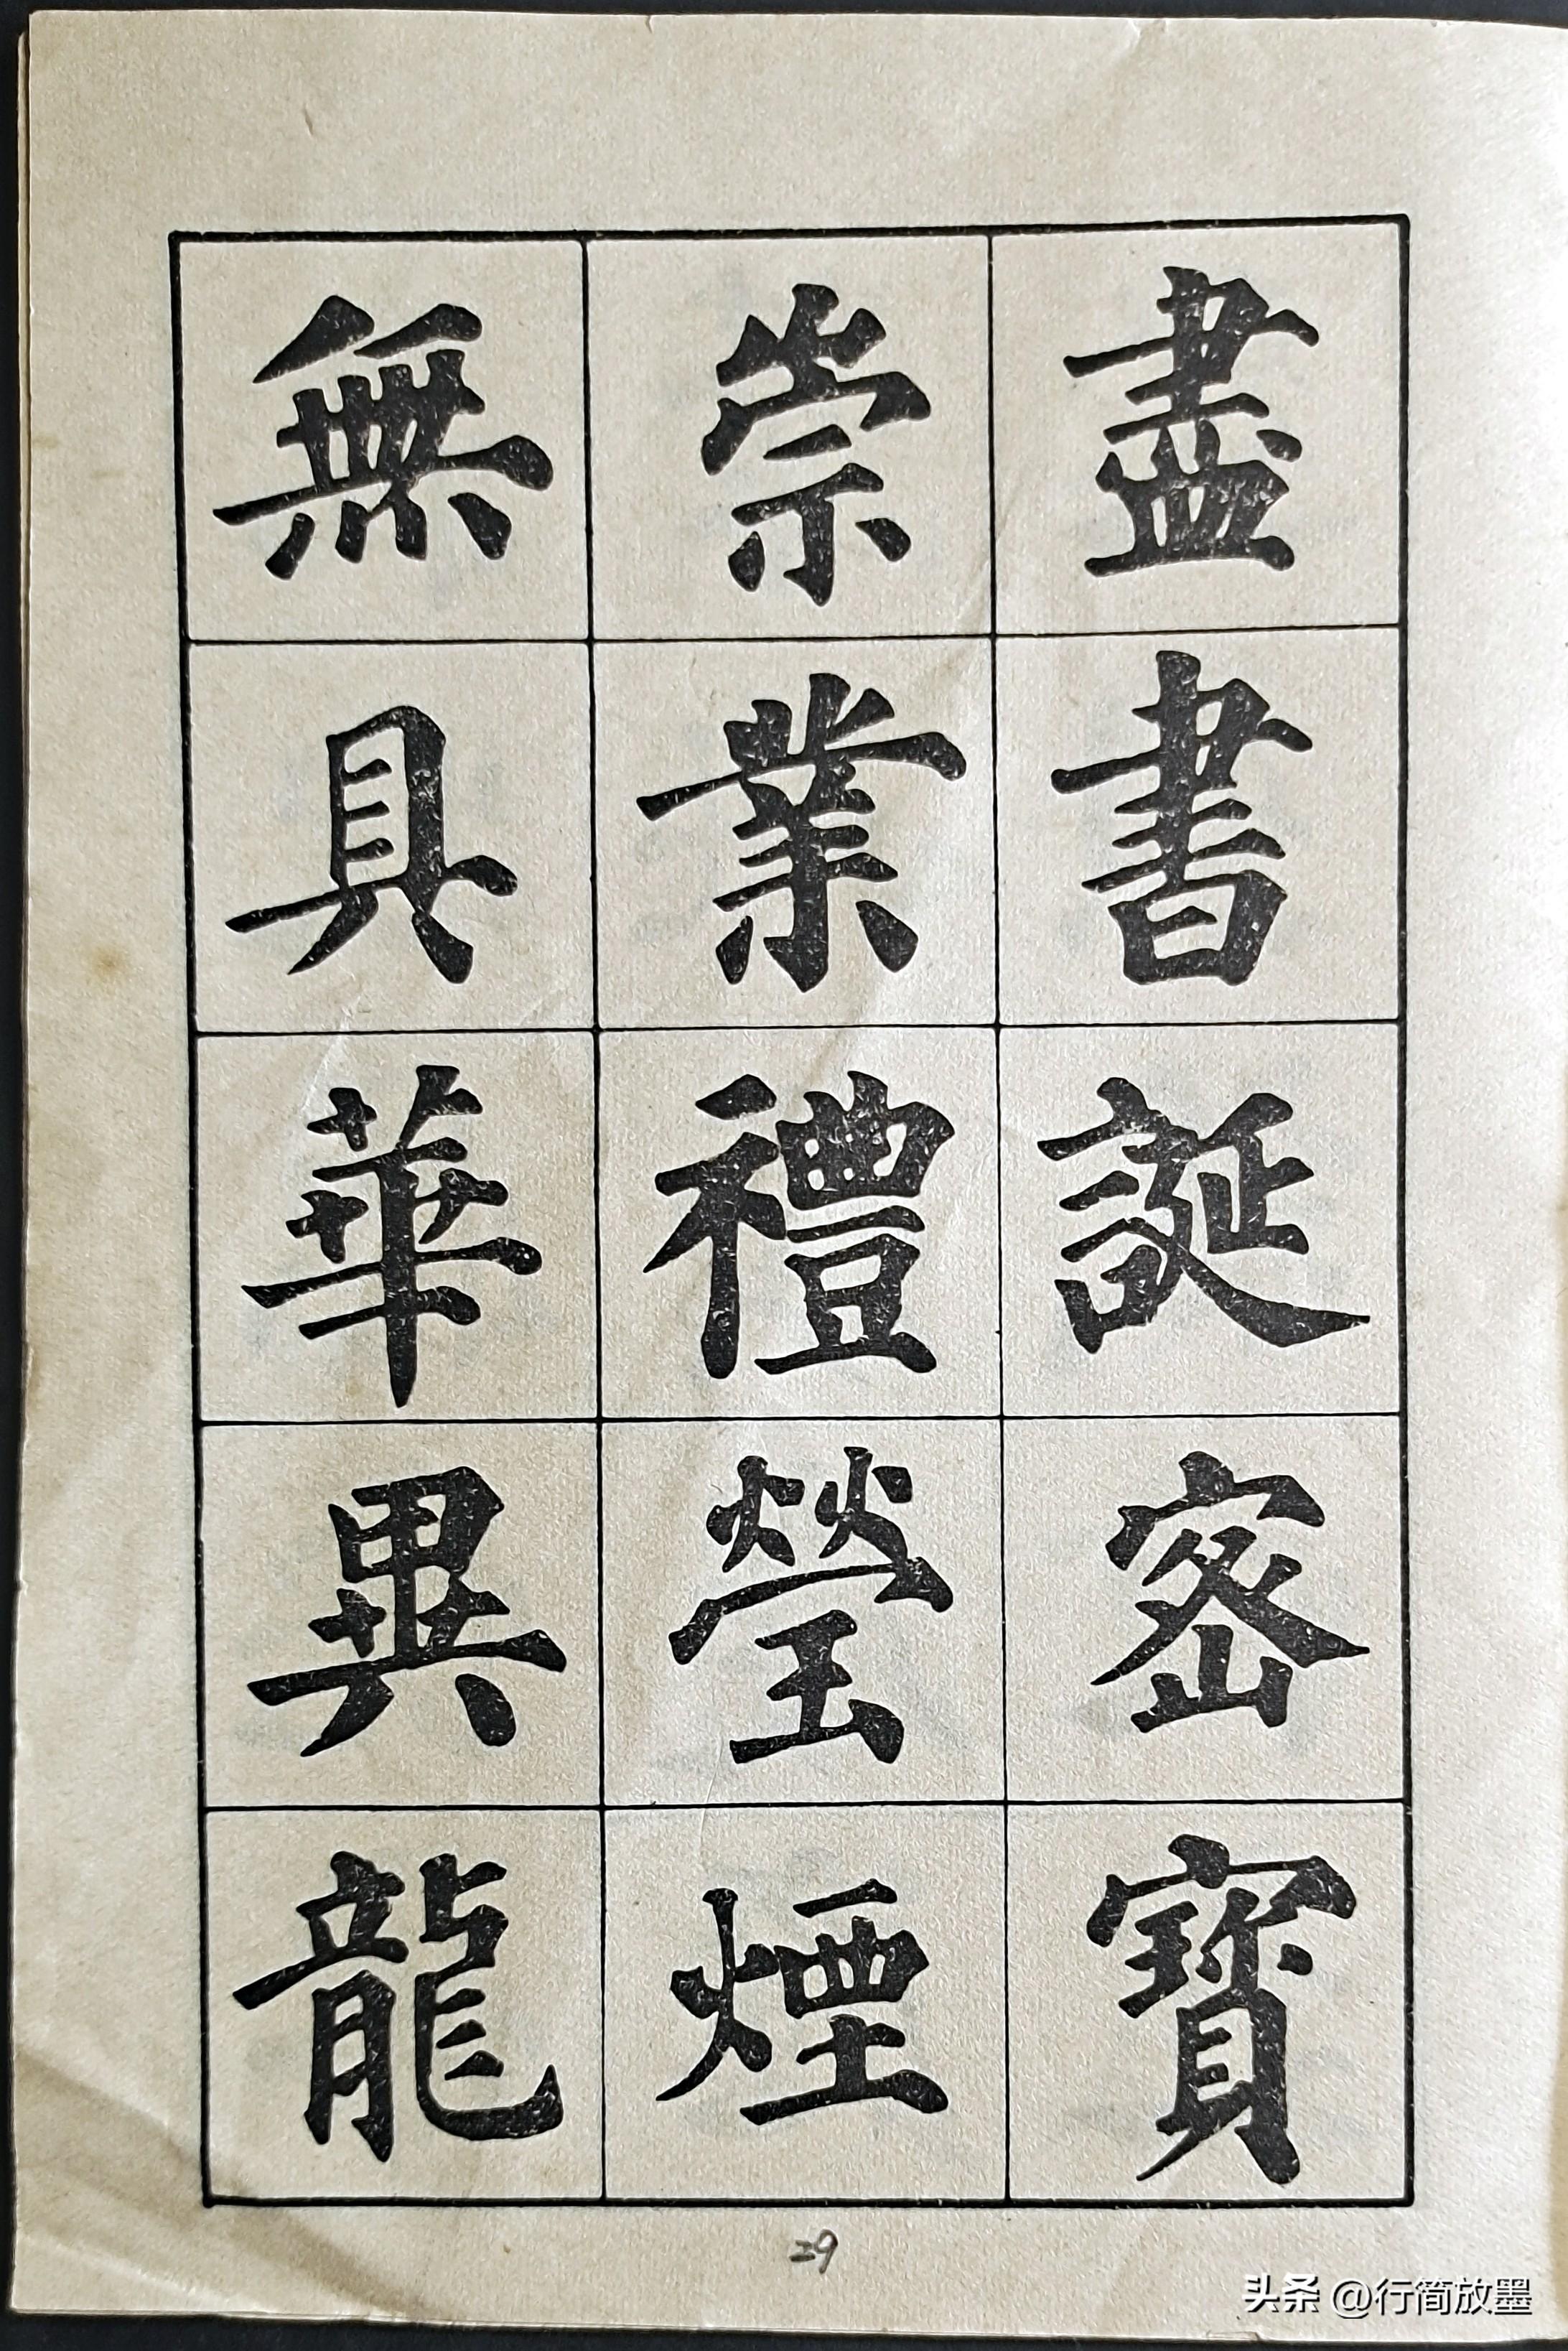 盡書誕密寶
崇業禮瑩煙
無具華異龍
29
头条 @行简放墨